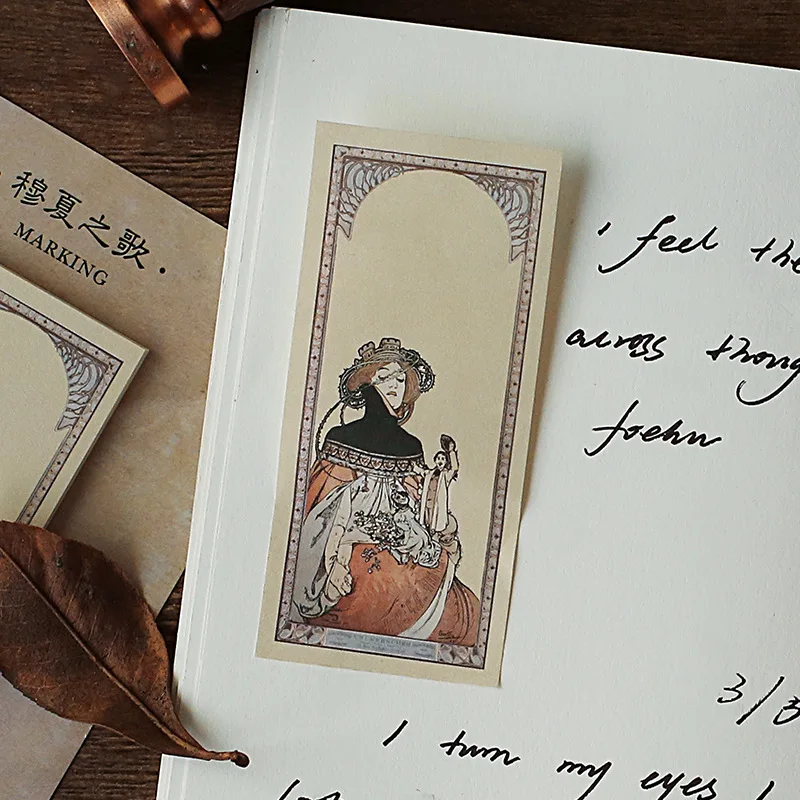 · 穆夏之歌 ·
MARKING
' feel the
across
foehn
3/3
I turn my eyes